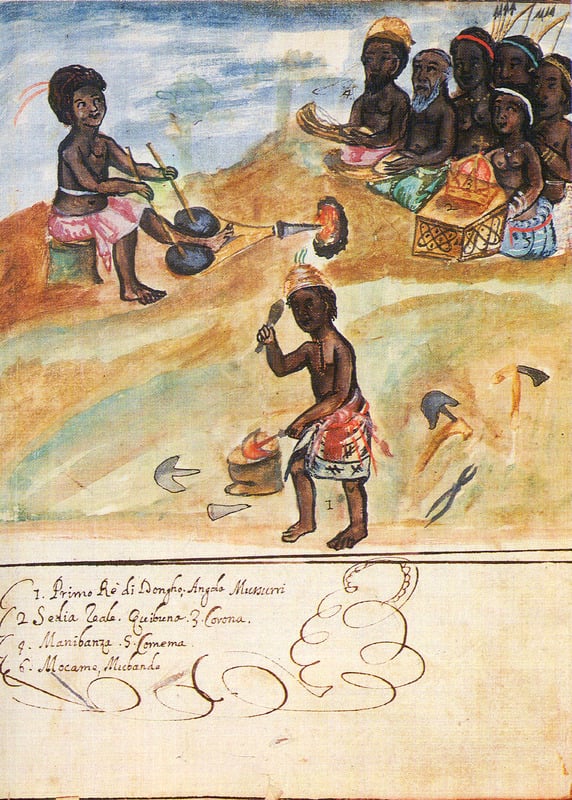 4
3
2
5
1
1. Primo Rè di Dongho. Angola Mussurri
2 Sedia Reale. Quibuna. 3. Corona.
4. Manibanza. 5. Comema
6. Mocame, Mubanda